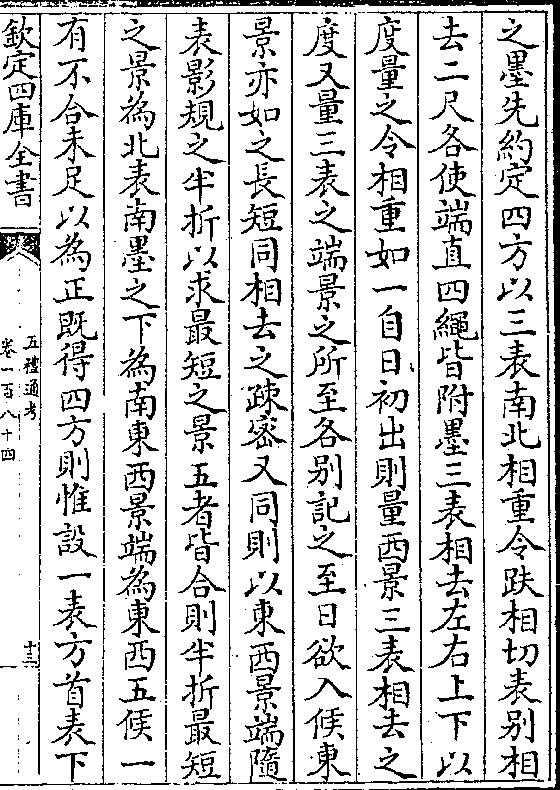 之墨先約定四方以三表南北相重令趺相切表别相
去二尺各使端直四繩皆附墨三表相去左右上下以
度量之令相重如一自日初出則量西景三表相去之
度又量三表之端景之所至各别記之至日欲入候東
景亦如之長短同相去之疎宻又同則以東西景端隨
表影規之半折以求最短之景五者皆合則半折最短
之景為北表南墨之下為南東西景端為東西五候一
有不合未足以為正既得四方則惟設一表方首表下
欽定四庫全書
五禮通考
卷一百八十四
十三